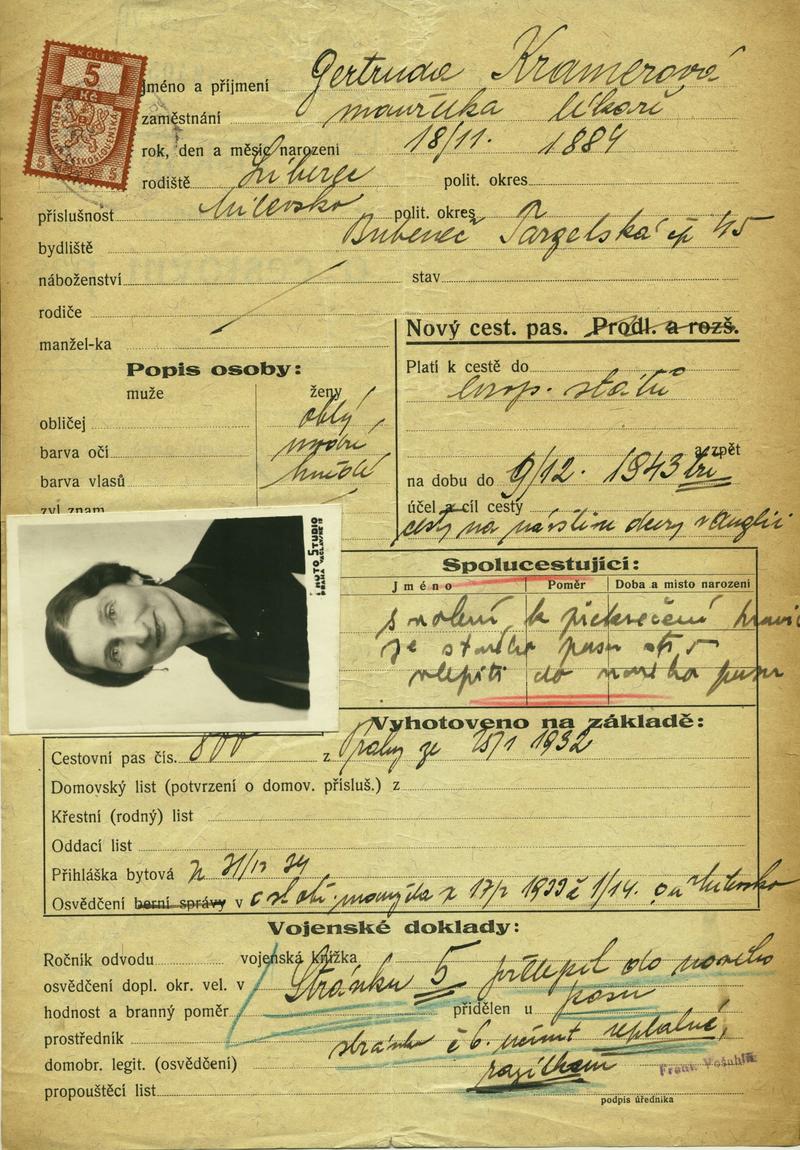 KOLEK
5
Kč
REPUBLIKA ČESKOSLOVENSKÁ
5 5
Jméno a příjmení Gertruda Kramerová
zaměstnání manželka lékaře
rok, den a měsíc narození 18/11. 1884
rodiště Liberec polit. okres
příslušnost Milevsko polit. okres
bydliště Bubeneč čp 45
náboženství stav
rodiče
manžel-ka
Nový cest. pas. Prodl. a rozš.
Popis osoby:
muže ženy
obličej oblý
barva očí modré
barva vlasů hnědé
zvl. znam.
Platí k cestě do
evrop. států
a zpět
na dobu do 9/12. 1943 tří
účel a cíl cesty
cesty na návštěvu dcery v Anglii
FOTO STUDIO
PRAHA VÁCLAVSKÉ
Spolucestující:
Jméno Poměr Doba a místo narození
svolení k překročení hranic
ze starého pasu
vlepiti do nového pasu
Vyhotoveno na základě:
Cestovní pas čís. 800 z Prahy ze 1932
Domovský list (potvrzení o domov. přísluš.) z
Křestní (rodný) list
Oddací list
Přihláška bytová
Osvědčení berní správy v o stát. z 1933 č 1/14.
Vojenské doklady:
Ročník odvodu vojenská knížka
osvědčení dopl. okr. vel. v Stránku 5 přilepil do nového
hodnost a branný poměr přidělen u pasu
prostředník stránku č 6. neplatné,
domobr. legit. (osvědčení) razítkem
propouštěcí list
podpis úředníka